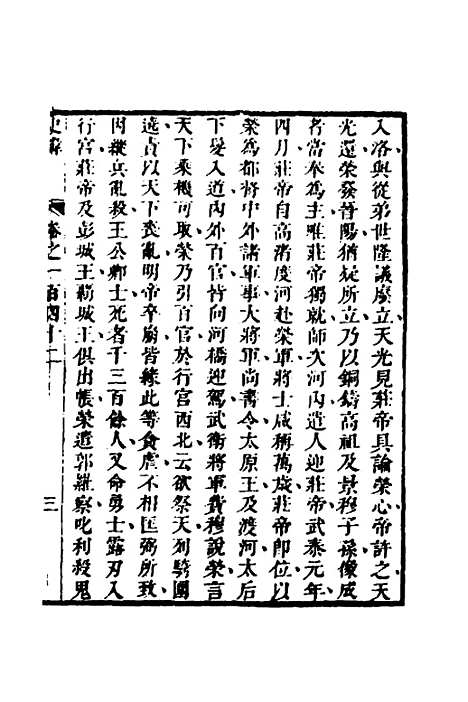 入洛與從弟世隆議廢立天光見莊帝具論榮心帝許之天
光還榮發晉陽猶疑所立乃以銅鑄高祖及景穆子孫像成
者當奉為主唯莊帝獨就師次河內遣人迎莊帝武泰元年
四月莊帝自高渚度河赴榮軍將士咸稱萬歲莊帝即位以
榮為都督中外諸軍事大將軍尚書令太原王及渡河太后
下髮入道內外百官皆向河橋迎駕武衛將軍費穆說榮言
天下乘機可取榮乃引百官於行宮西北云欲祭天列騎圍
遶責以天下喪亂明帝卒崩皆緣此等貪虐不相匡弼所致
因縱兵亂殺王公卿士死者千三百餘人又命勇士露刃入
行宮莊帝及彭城王新城王俱出帳榮遣郭羅察叱利殺鬼
卷之一百四十二
三